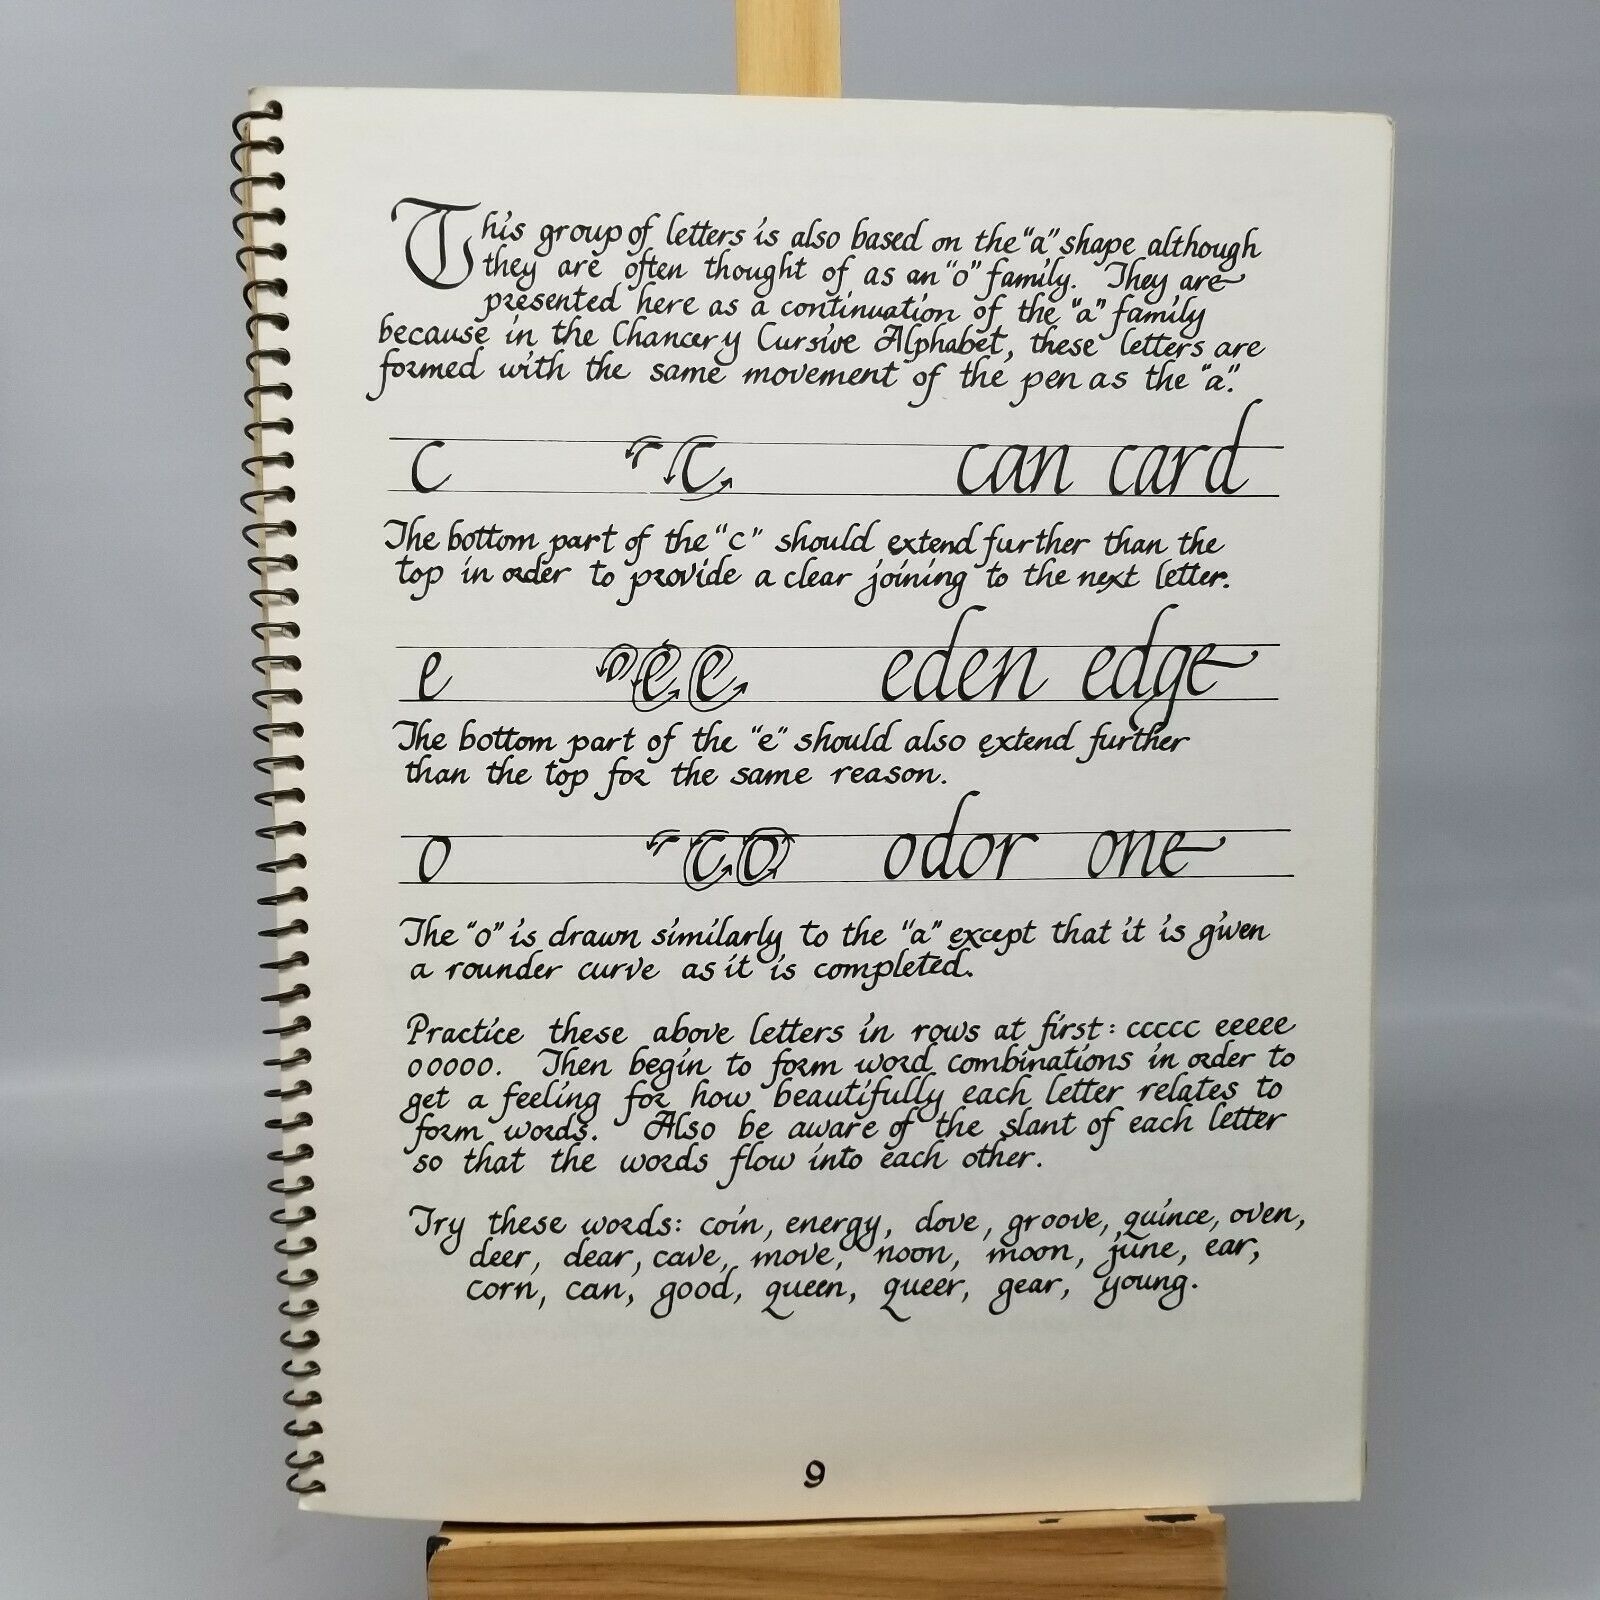 This group of letters is also based on the "a" shape although
they are often thought of as an "o" family. They are
presented here as a continuation of the "a" family
because in the Chancery Cursive Alphabet, these letters are
formed with the same movement of the pen as the "a".
c c can card
The bottom part of the "c" should extend further than the
top in order to provide a clear joining to the next letter.
e e e eden edge
The bottom part of the "e" should also extend further
than the top for the same reason.
o c o odor one
The "o" is drawn similarly to the "a" except that it is given
a rounder curve as it is completed.
Practice these above letters in rows at first: ccccc eeeee
ooooo. Then begin to form word combinations in order to
get a feeling for how beautifully each letter relates to
form words. Also be aware of the slant of each letter
so that the words flow into each other.
Try these words: coin, energy, dove, groove, quince, oven,
deer, dear, cave, move, noon, moon, june, ear,
corn, can, good, queen, queer, gear, young.
9